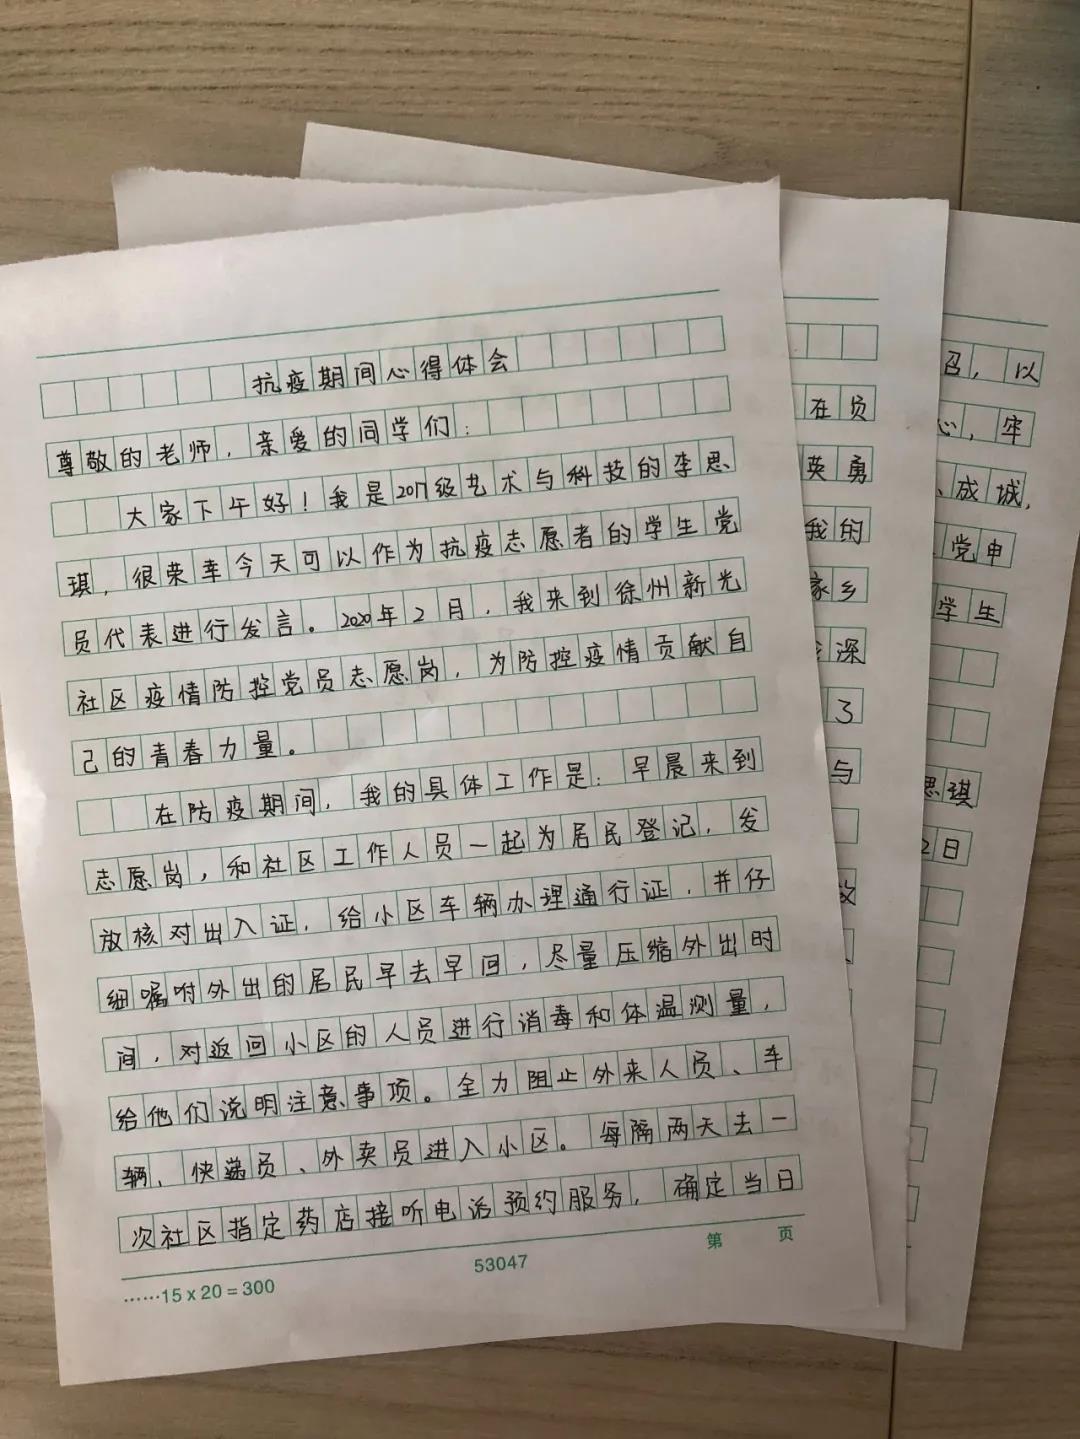 抗疫期间心得体会
尊敬的老师，亲爱的同学们：
大家下午好！我是2017级艺术与科技的李思
琪，很荣幸今天可以作为抗疫志愿者的学生党
员代表进行发言。2020年2月，我来到徐州新光
社区疫情防控党员志愿岗，为防控疫情贡献自
己的青春力量。
在防疫期间，我的具体工作是：早晨来到
志愿岗，和社区工作人员一起为居民登记，发
放核对出入证，给小区车辆办理通行证，并仔
细嘱咐外出的居民早去早回，尽量压缩外出时
间，对返回小区的人员进行消毒和体温测量，
给他们说明注意事项。全力阻止外来人员、车
辆、快递员、外卖员进入小区。每隔两天去一
次社区指定药店接听电话预约服务，确定当日
第 页
53047
······15 x 20 = 300
在负
英勇
我的
家乡
深
了
与
召，以
心，牢
、成城，
党申
学生
思琪
2日